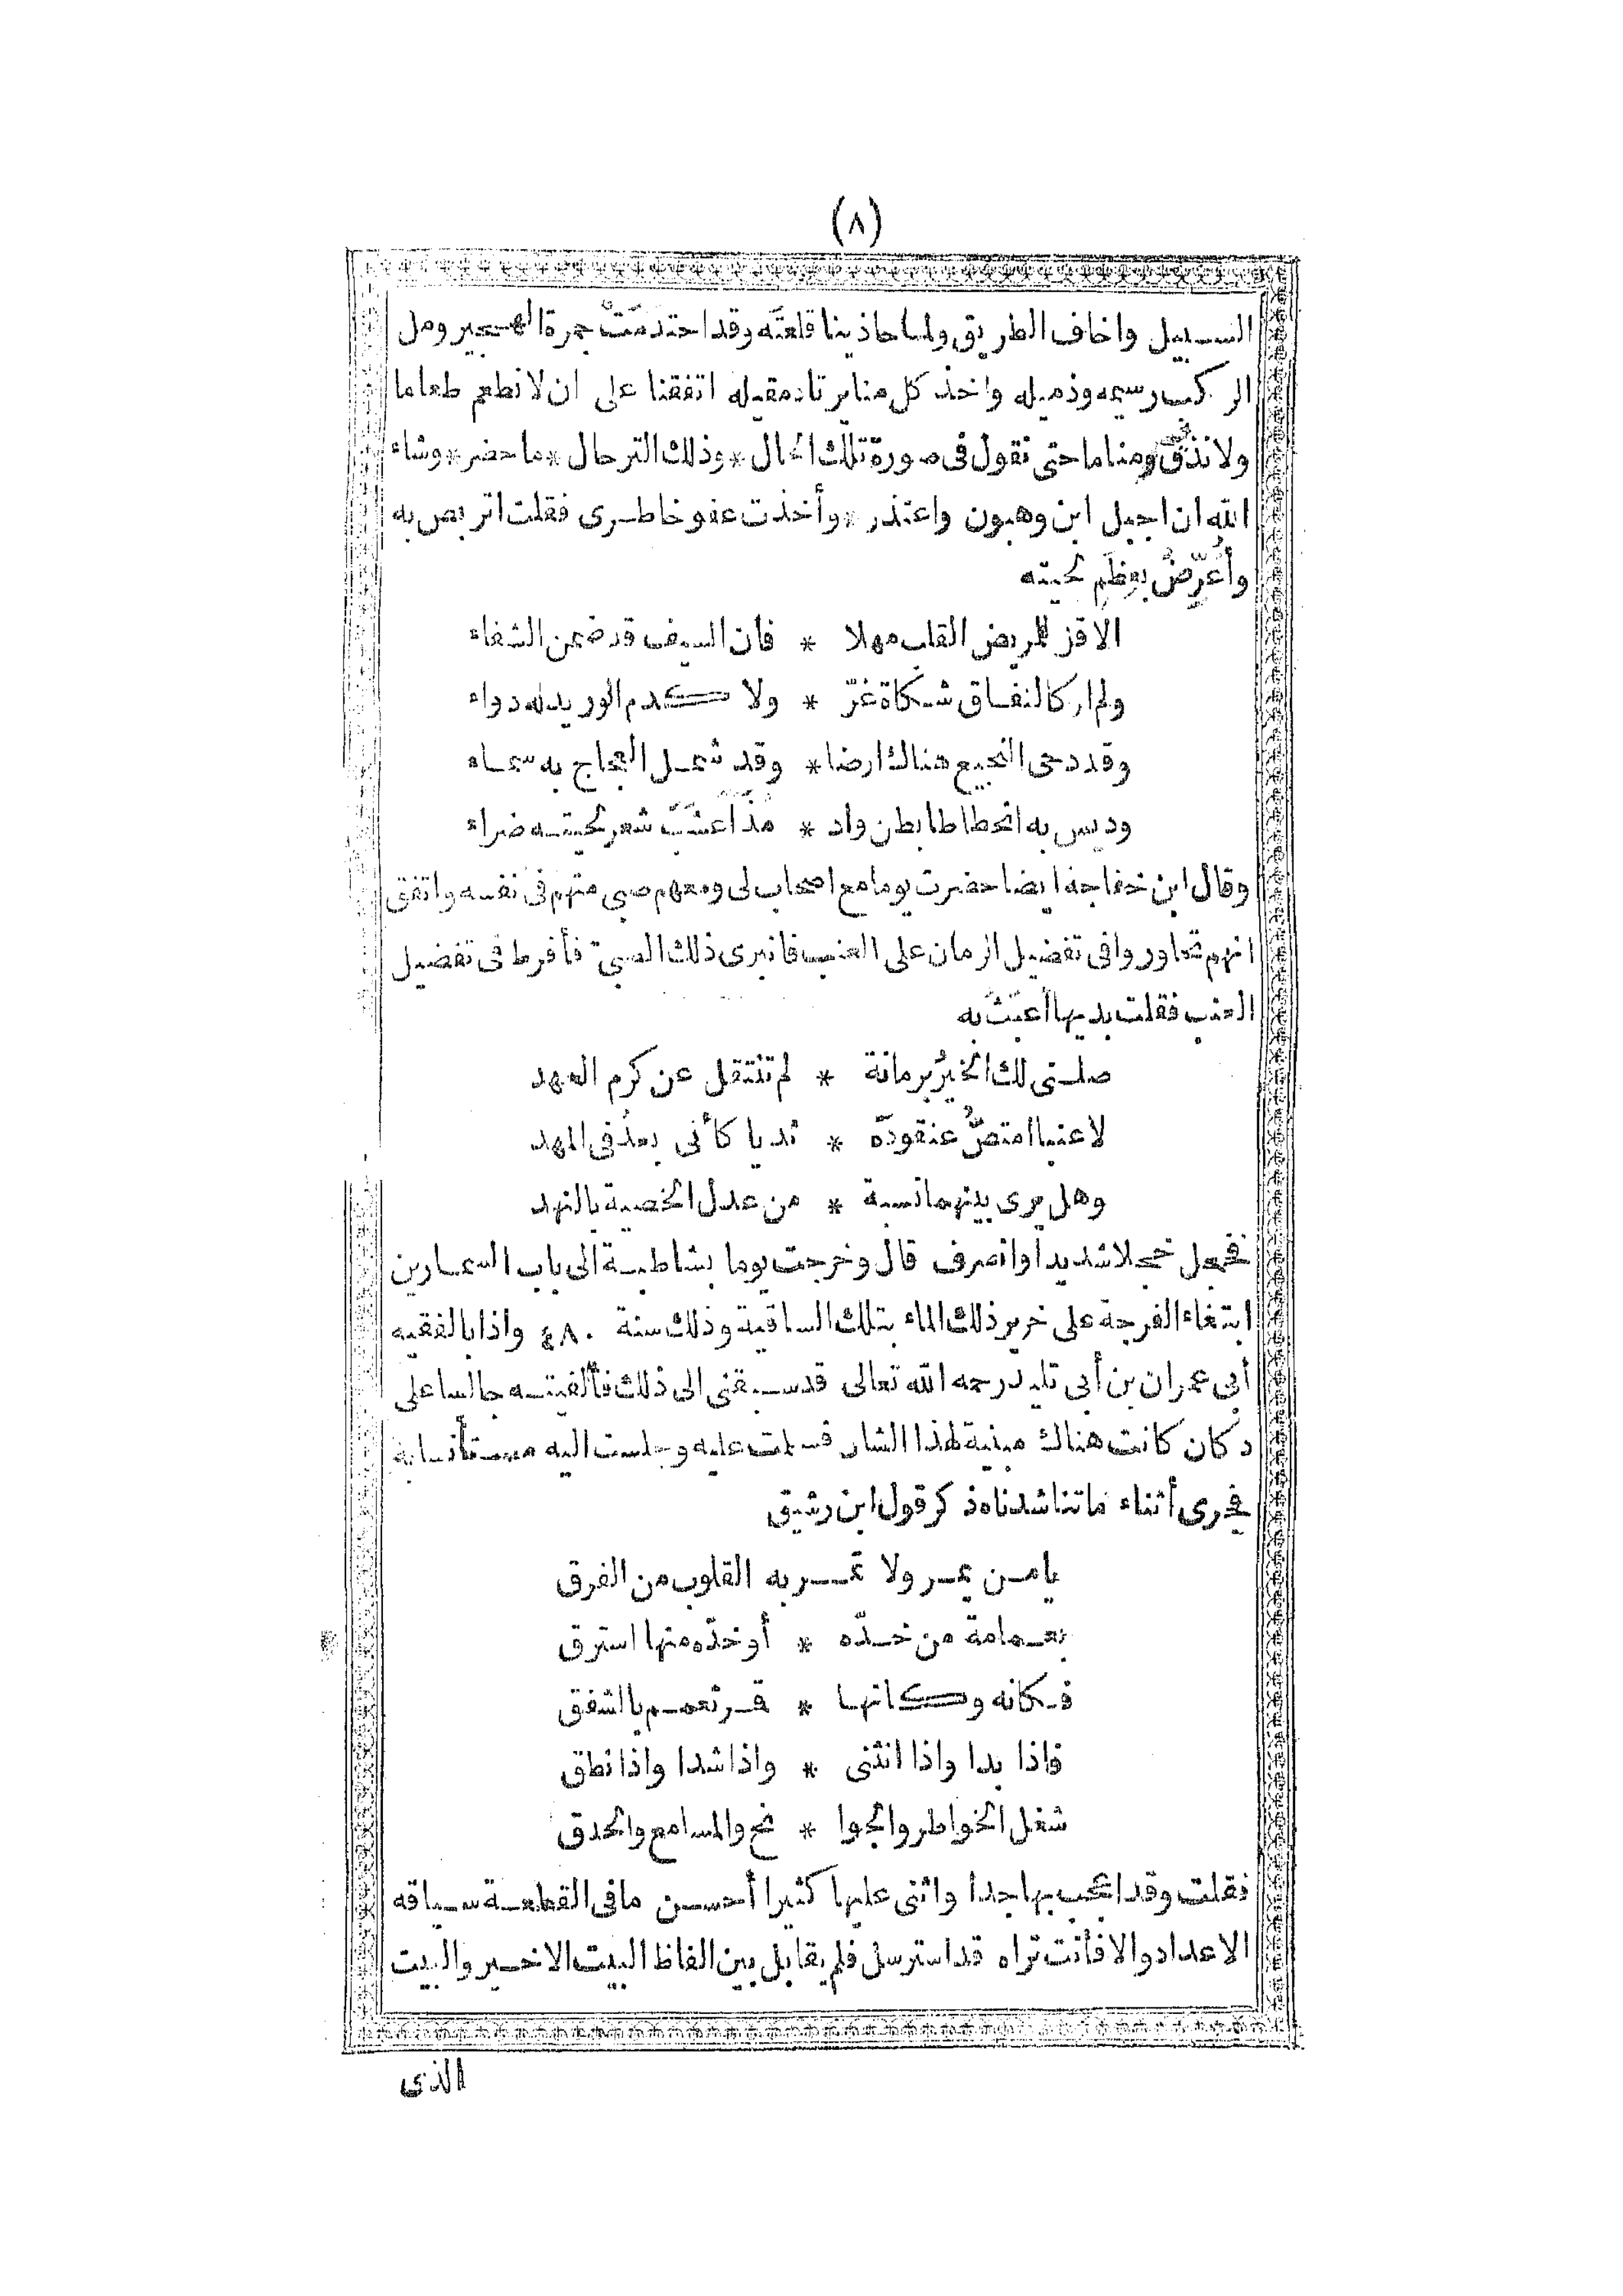 (٨)
السبيل واخاف الطريق ولما حاذينا قلعته وقد احتدمت جمرة الهجير ومل
الركب رسيمه وذميله واخذ كل منا يرتاد مقيله اتفقنا على ان لا نطعم طعاما
ولا نذق مناما حتى نقول فى صورة تلك الحال * وذلك الترحال * ما حضر * وشاء
الله ان اجبل ابن وهبون واعتذر * وأخذت عفو خاطرى فقلت اتربص به
وأُعَرِّضُ بعِظَمِ لحيته
الا قل للمريض القلب مهلا * فان السيف قد ضمن الشفاء
ولم ار كالنفاق شكاة غرّ * ولا كدم الوريد له دواء
وقد دحى النجيع هناك ارضا * وقد سمك العجاج به سماء
وديس به انحطاطا بطن واد * مذ اَعشَبَ شعر لحيته ضراء
وقال ابن خفاجة ايضا حضرت يوما مع اصحاب لى ومعهم صبى متهم فى نفسه واتفق
انهم تحاوروا فى تفضيل الرمان على العنب فانبرى ذلك الصبىّ فأفرط فى تفضيل
العنب فقلت بديها أعبث به
صلنى لك الخيرُ برمانة * لم تنتقل عن كرم العهد
لا عنبا امتصُّ عنقودَه * ثديا كأنى بعدُ فى المهد
وهل يرى بينهما نسبة * من عدل الخصية بالنهد
فخجل خجلا شديدا وانصرف قال وخرجت يوما بشاطبة الى باب السمارين
ابتغاء الفرجة على خرير ذلك الماء بتلك الساقية وذلك سنة ٤٨٠ واذا بالفقيه
أبى عمران بن أبى تليد رحمه الله تعالى قد سبقنى الى ذلك فألفيته جالسا على
دكان كانت هناك مبنية لهذا الشان فسلمت عليه وجلست اليه مستأنسا به
فجرى أثناء ما تناشدناه ذكر قول ابن رشيق
يا من يمر ولا تمر به القلوب من الفرق
بعمامة من خدّه * أو خدّه منها استرق
فكانه وكانها * قمر تعمم بالشفق
فاذا بدا واذا انثنى * واذا شدا واذا نطق
شغل الخواطر والجوا * نح والمسامع والحدق
فقلت وقد اعجب بها جدا واثنى عليها كثيرا أحسن ما فى القطعة سياقه
الاعداد والا فأنت تراه قد استرسل فلم يقابل بين الفاظ البيت الاخير والبيت
الذى